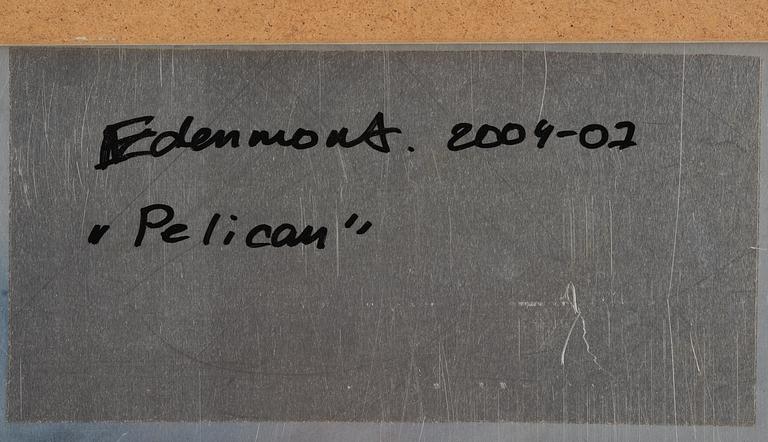 Edenmont. 2004-02
"Pelican"